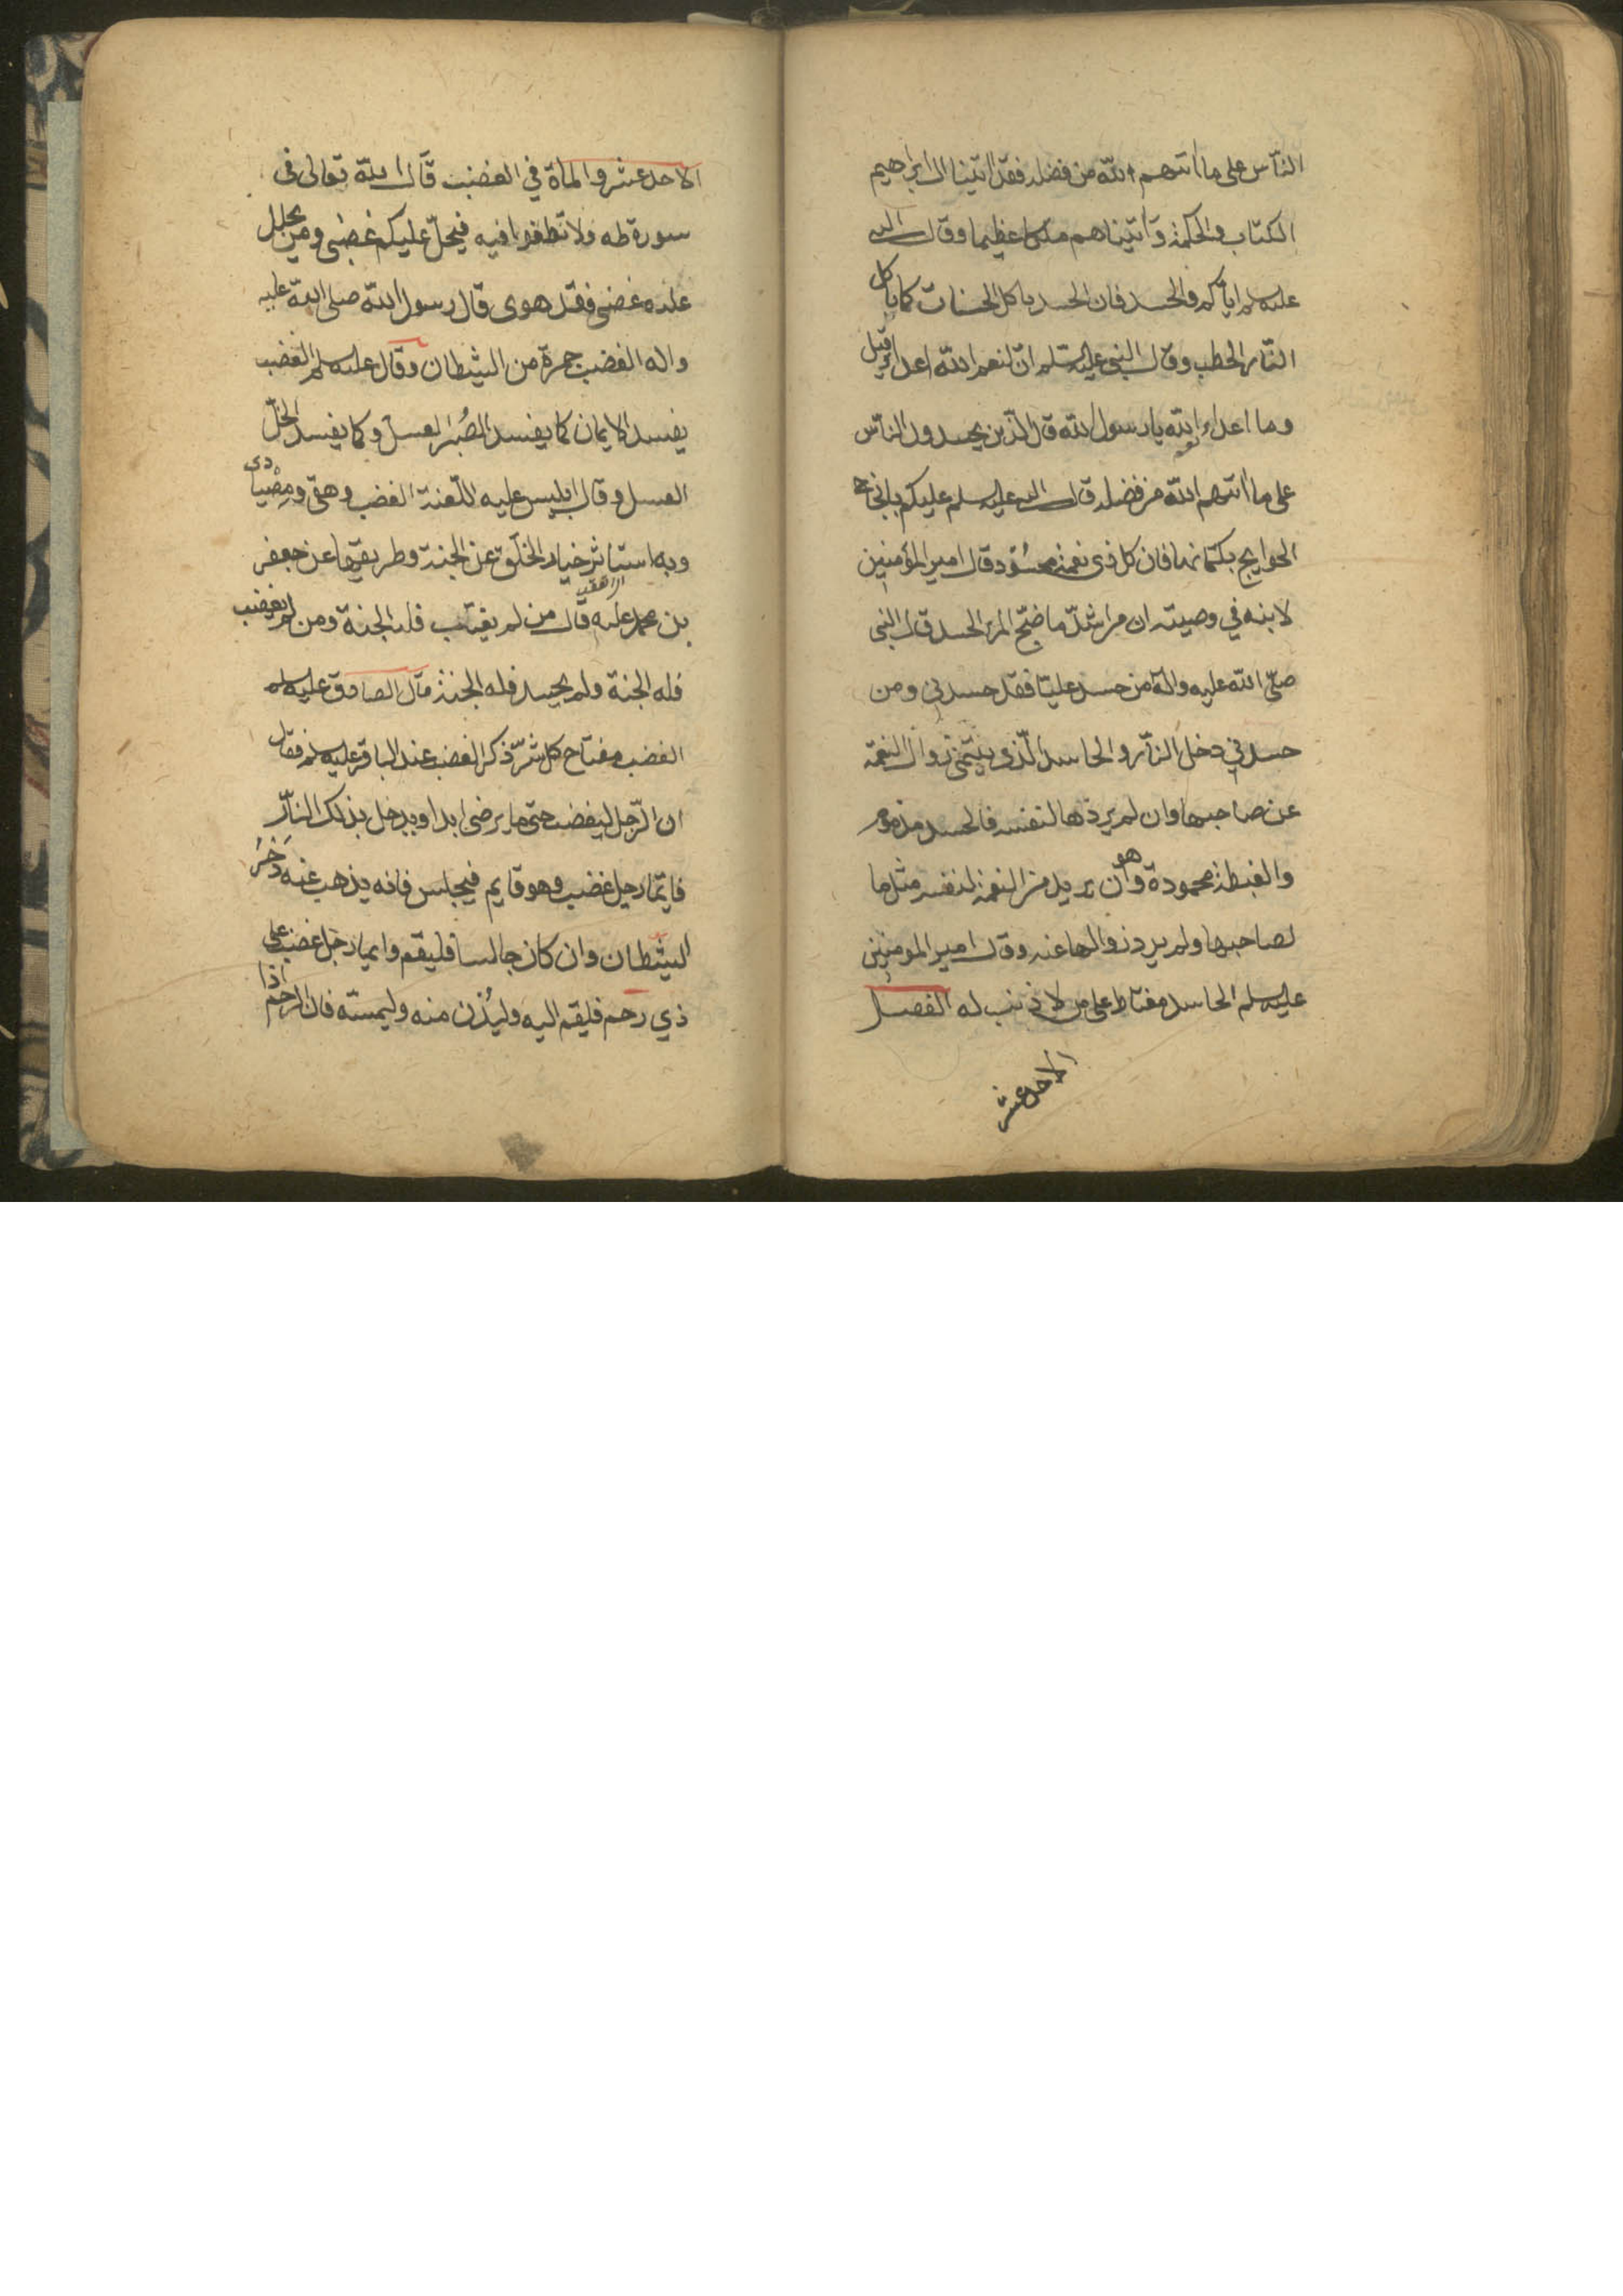 الناس على ما اتيهم الله من فضله فقد اتينا ال ابرهيم
الكتاب والحكمة وآتيناهم ملكا عظيما وقال النبي
عليه سلم اياكم والحسد فان الحسد ياكل الحسنات كما ياكل
النار الحطب وقال النبي عليه السلم ان لنعم الله اعداء قيل
وما اعداء نعم الله يا رسول الله قال الذين يحسدون الناس
على ما اتيهم الله من فضله قال النبي عليه سلم عليكم بانجاح
الحوايج بكتمانها فان كل ذي نعمة محسود قال امير المؤمنين
لابنه في وصيته ان من اشد ما ضيح المرء الحسد قال النبي
صلى الله عليه واله من حسد عليا فقد حسدني ومن
حسدني دخل النار والحاسد الذي يتمنى زوال النعمة
عن صاحبها وان لم يردها لنفسه فالحسد مذموم
والغبطة محمودة وهو ان يريد من النعمة لنفسه مثل ما
لصاحبها ولم يرد زوالها عنه وقال امير المومنين
عليه سلم الحاسد مغتاظ على من لا ذنب له الفصل
الاحد عشر
الاحد عشر والماة في الغضب قال الله تعالى في
سورة طه ولا تطغوا فيه فيحل عليكم غضبي ومن يحلل
عليه غضبي فقد هوى قال رسول الله صلى الله عليه
واله الغضب جمرة من الشيطان وقال عليه سلم الغضب
يفسد الايمان كما يفسد الصبر العسل وكما يفسد الخل
العسل وقال ابليس عليه اللعنة الغضب وهقي ومصيادي
وبه استاثر خيار الخلق عن الجنة وطريقها عن جعفر
بن محمد عليه قال من لم يغتب فله الجنة ومن لم يغضب
فله الجنة ولم يحسد فله الجنة قال الصادق عليه سلم
الغضب مفتاح كل شر ذكر الغضب عند الباقر عليه سلم فقال
ان الرجل ليغضب حتى ما يرضى ابدا ويدخل بذلك النار
فايما رجل غضب وهو قايم فيجلس فانه يذهب عنه رجز
الشيطان وان كان جالسا فليقم وايما رجل غضب على
ذي رحم فليقم اليه وليدن منه وليمسه فان الرحم اذا